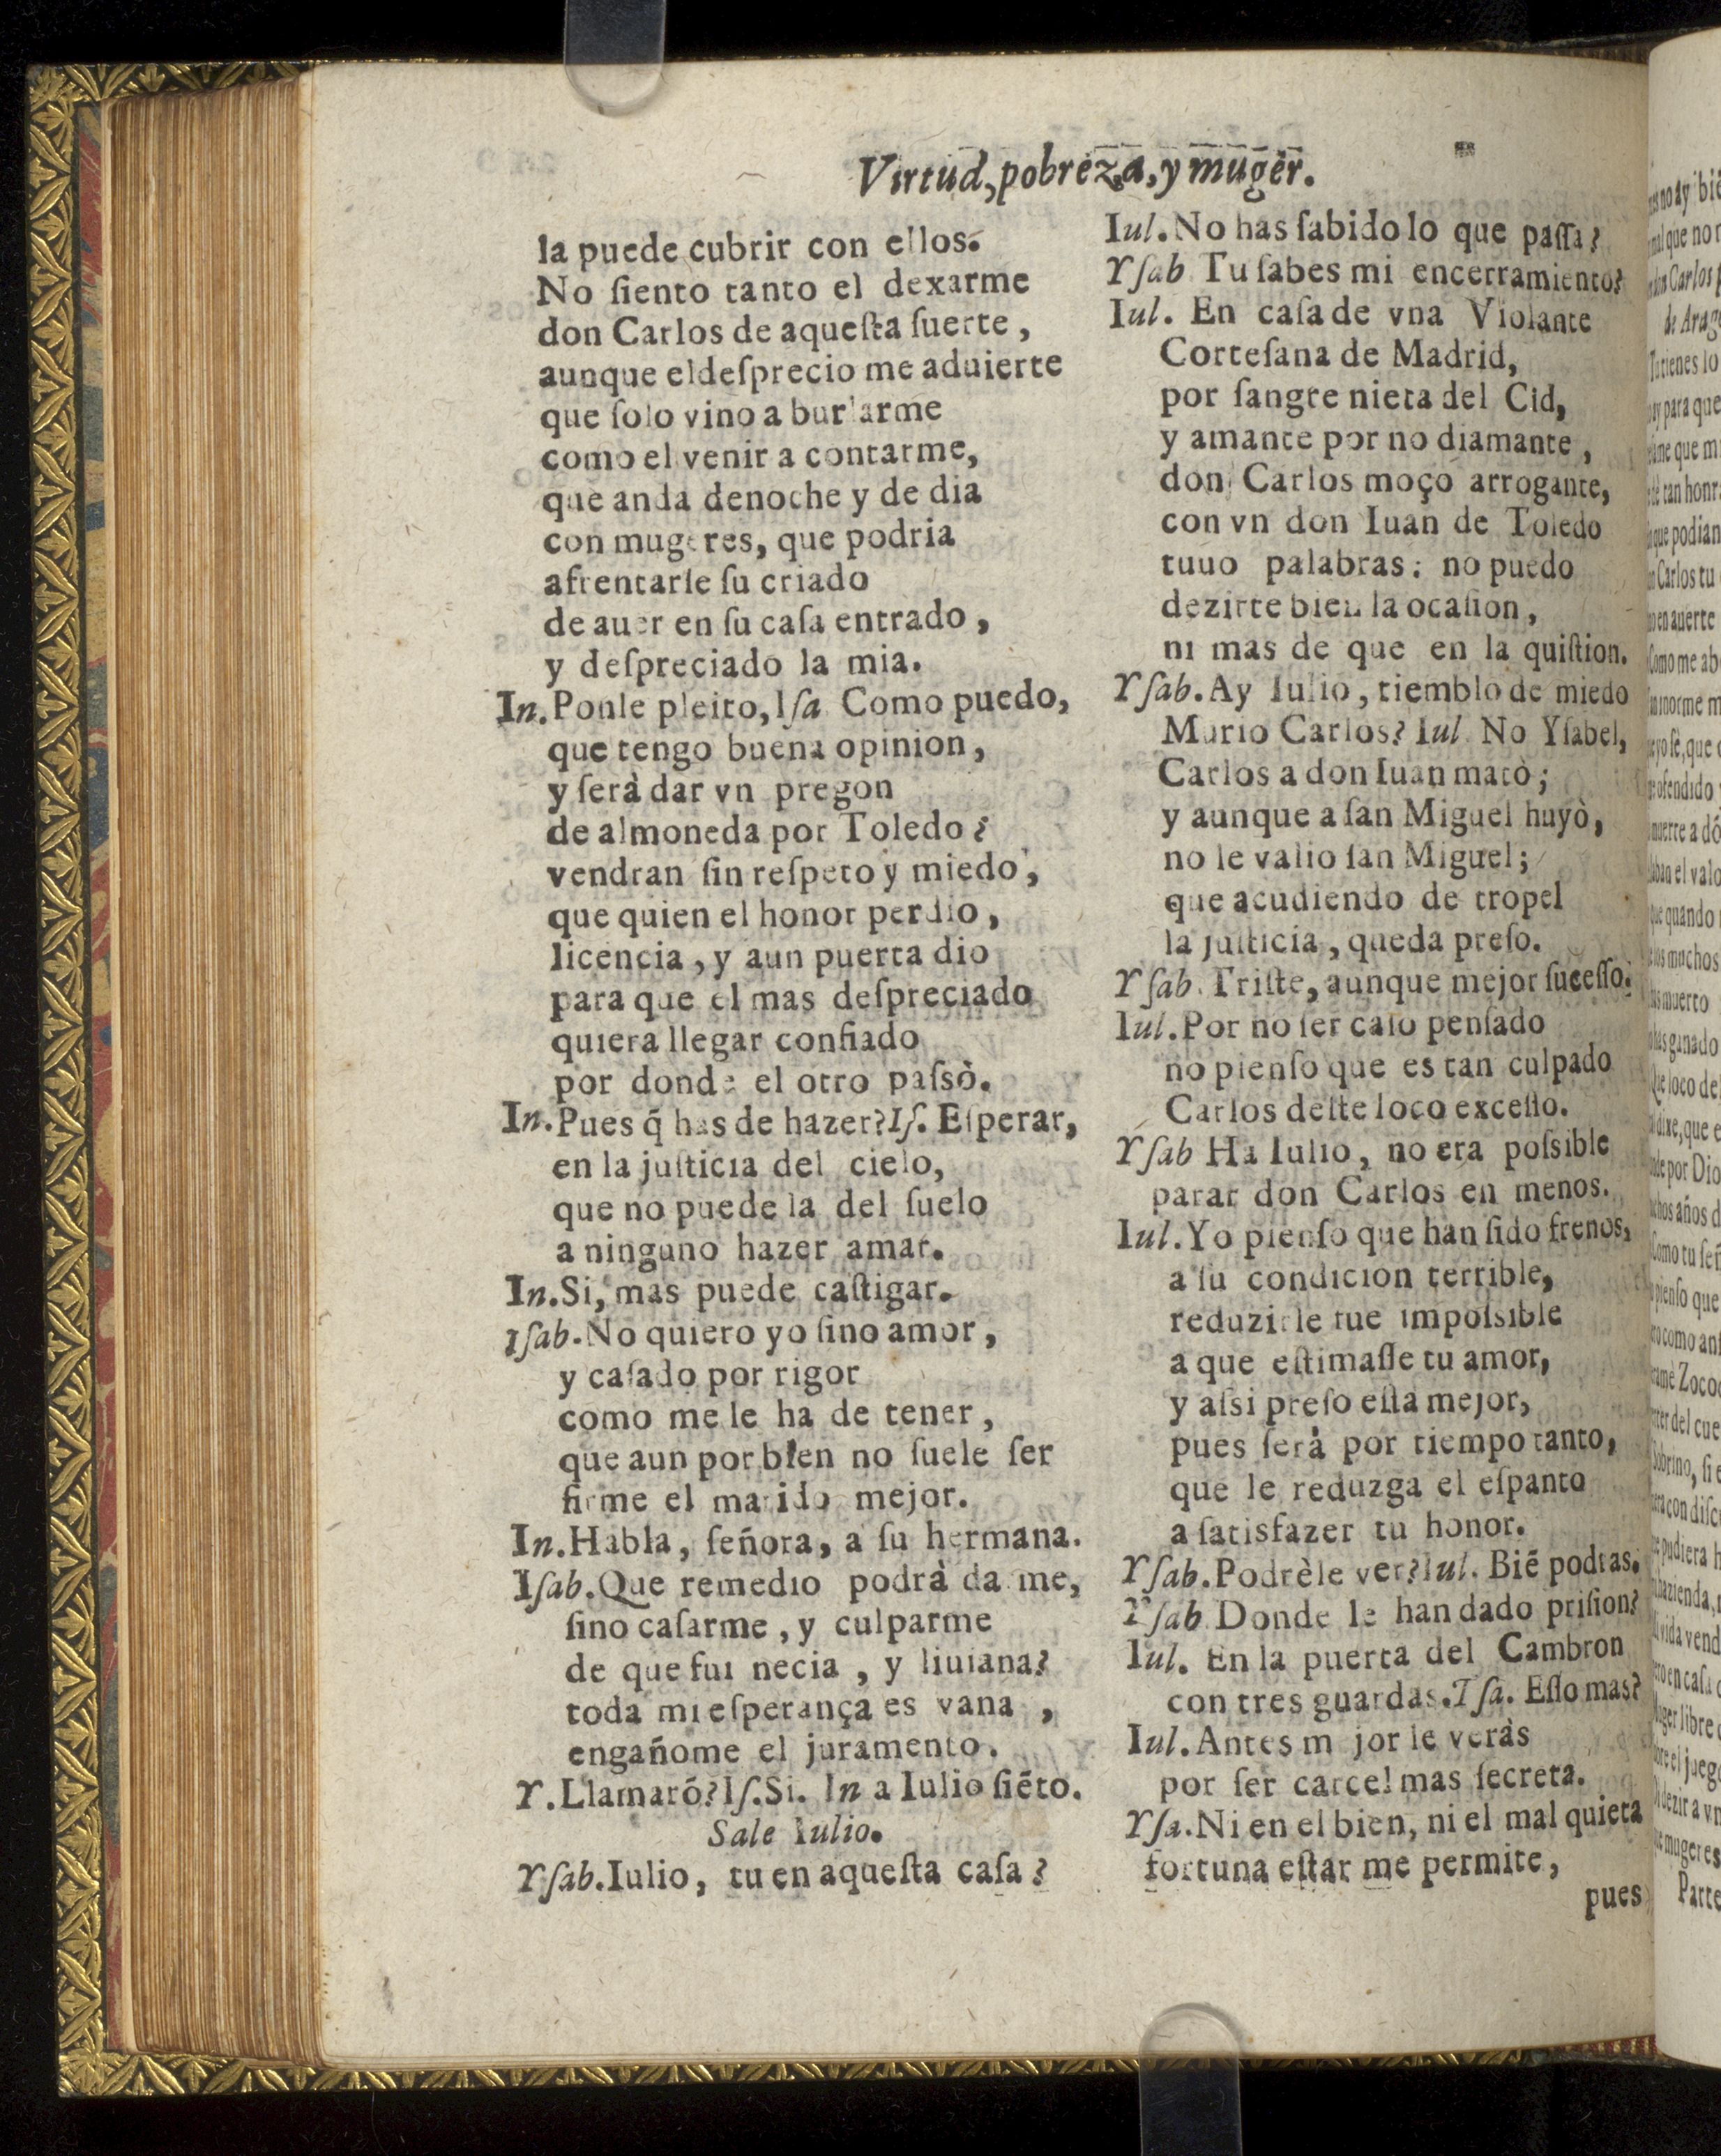 Virtud, pobreza, y muger.
la puede cubrir con ellos.
No ſiento tanto el dexarme
don Carlos de aqueſta ſuerte,
aunque el deſprecio me aduierte
que ſolo vino a burlarme
como el venir a contarme,
que anda de noche y de dia
con mugeres, que podria
afrentarſe ſu criado
de auer en ſu caſa entrado,
y deſpreciado la mia.
In. Ponle pleito, Iſa Como puedo,
que tengo buena opinion,
y ſerà dar vn pregon
de almoneda por Toledo?
vendran ſin reſpeto y miedo,
que quien el honor perdio,
licencia, y aun puerta dio
para que el mas deſpreciado
quiera llegar confiado
por donde el otro paſsò.
In. Pues q̃ has de hazer? Iſ. Eſperar,
en la juſticia del cielo,
que no puede la del ſuelo
a ninguno hazer amar.
In. Si, mas puede caſtigar.
Iſab. No quiero yo ſino amor,
y caſado por rigor
como me le ha de tener,
que aun por bien no ſuele ſer
firme el marido mejor.
In. Habla, ſeñora, a ſu hermana.
Iſab. Que remedio podrà da me,
ſino caſarme, y culparme
de que fui necia, y liuiana?
toda mi eſperança es vana,
engañome el juramento.
Y. Llamarõ? Iſ. Si. In a Iulio ſiẽto.
Sale Iulio.
Yſab. Iulio, tu en aqueſta caſa?
Iul. No has ſabido lo que paſſa?
Yſab Tu ſabes mi encerramiento?
Iul. En caſa de vna Violante
Corteſana de Madrid,
por ſangre nieta del Cid,
y amante por no diamante,
don Carlos moço arrogante,
con vn don Iuan de Toledo
tuuo palabras: no puedo
dezirte bien la ocaſion,
ni mas de que en la quiſtion.
Yſab. Ay Iulio, tiemblo de miedo
Murio Carlos? Iul No Yſabel,
Carlos a don Iuan matò;
y aunque a ſan Miguel huyò,
no le valio ſan Miguel;
que acudiendo de tropel
la juſticia, queda preſo.
Yſab. Triſte, aunque mejor ſuceſſo.
Iul. Por no ſer caſo penſado
no pienſo que es tan culpado
Carlos deſte loco exceſſo.
Yſab Ha Iulio, no era poſsible
parar don Carlos en menos.
Iul. Yo pienſo que han ſido frenos,
a ſu condicion terrible,
reduzirle fue impoſsible
a que eſtimaſſe tu amor,
y aſsi preſo eſta mejor,
pues ſerà por tiempo tanto,
que le reduzga el eſpanto
a ſatisfazer tu honor.
Yſab. Podrèle ver? Iul. Biẽ podras.
Yſab Donde le han dado priſion?
Iul. En la puerta del Cambron
con tres guardas. Iſa. Eſſo mas?
Iul. Antes m jor le veràs
por ſer carcel mas ſecreta.
Yſa. Ni en el bien, ni el mal quieta
fortuna eſtar me permite,
pues